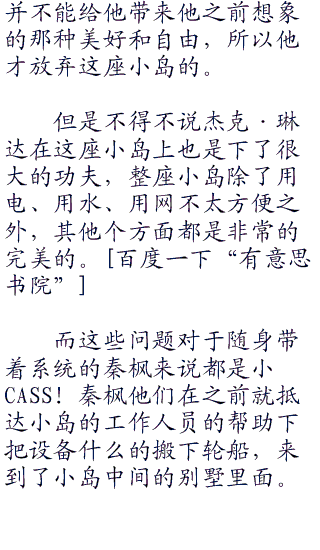 并不能给他带来他之前想象
的那种美好和自由，所以他
才放弃这座小岛的。
但是不得不说杰克·琳
达在这座小岛上也是下了很
大的功夫，整座小岛除了用
电、用水、用网不太方便之
外，其他个方面都是非常的
完美的。[百度一下“有意思
书院”]
而这些问题对于随身带
着系统的秦枫来说都是小
CASS！秦枫他们在之前就抵
达小岛的工作人员的帮助下
把设备什么的搬下轮船，来
到了小岛中间的别墅里面。